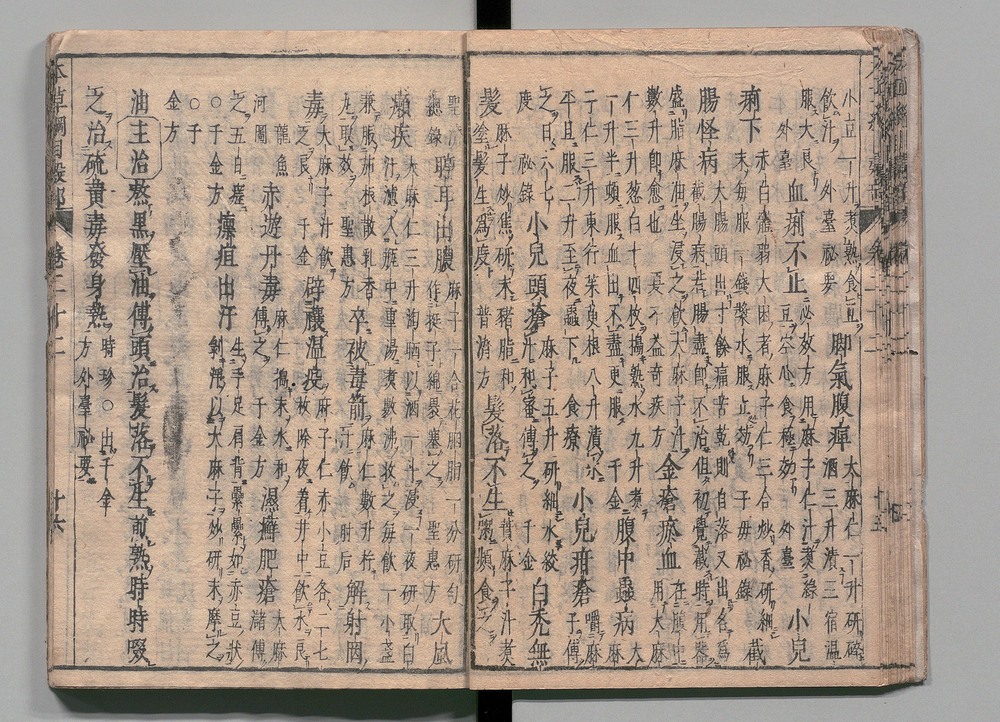 小豆一升汁煮熟食豆
飲汁 外臺祕要
脚氣腹痺
大麻仁一升研碎
酒三升漬三宿温
服大良
外臺
血痢不止
必效方用麻子仁汁煮綠
豆空心食極効 外臺
小兒
痢下
赤白體弱大困者麻子仁三合炒香研細
末每服一錢漿水服立効 子母祕錄
截
腸怪病
大腸頭出寸餘痛苦乾即自落又出名爲
截腸病若腸盡即不治但初覺截時用器
盛脂麻油坐浸之飲大麻子汁
數升即愈也 夏子益奇疾方
金瘡瘀血
在腹中
用大麻
仁三升葱白十四枚搗熟水九升煮
一升半頓服血出不盡更服 千金
腹中蟲病
大麻
子仁三升東行茱萸根八升漬水
平旦服二升至夜蟲下 食療
小兒疳瘡
嚼麻
子傅
之日六七
度 祕錄
小兒頭瘡
麻子五升研細水絞
汁和蜜傅之 千金
白禿無
髮
麻子炒焦研末豬脂和
塗髮生爲度 普濟方
髮落不生
蓖麻子汁煮
粥頻食之
聖濟
總錄
聤耳出膿
麻子一合花胭脂一分研勻
作挺子綿裹塞之 聖惠方
大風
癩疾
大麻仁三升淘晒以酒一斗浸一夜研取白
汁濾入瓶中重湯煮數沸收之每飲一小盞
兼服茄根散乳香
丸取效 聖惠方
卒被毒箭
麻仁數升杵
汁飲 肘后
解射罔
毒
大麻子汁飲
之良 千金
辟禳温疫
麻子仁赤小豆各二七
枚除夜着井中飲水良
龍魚
河圖
赤遊丹毒
麻仁搗末水和
傅之 千金方
濕癬肥瘡
大麻
渚傅
之五日瘥
千金方
瘭疽出汁
生手足肩背纍纍如赤豆狀
剝淨以大麻子炒研末摩之
千
金方
油主治熬黑壓油傅頭治髮落不生煎熟時時啜
之治硫黄毒發身熱
時珍 出千金
方外臺祕要
卷二十二
十六